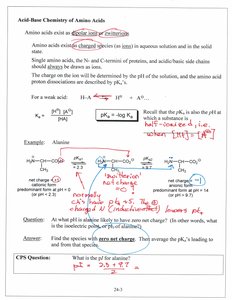 Acid-Base Chemistry of Amino Acids
Amino acids exist as dipolar ions or zwitterions
Amino acids exist as charged species (as ions) in aqueous solution and in the solid
state.
Single amino acids, the N- and C-termini of proteins, and acidic/basic side chains
should always be drawn as ions.
The charge on the ion will be determined by the pH of the solution, and the amino acid
proton dissociations are described by pKa's.
For a weak acid: H–A ⇌ H⊕ + A⊖...
Ka = [H⊕] [A⊖] / [HA]
pKa = -log Ka
Recall that the pKa is also the pH at
which a substance is
half-ionized, i.e.
when [HA] = [A⊖]
Example: Alanine
zwitterion
net charge
= 0
net charge
cationic form
predominant form at pH = 0
(or pH < 2.3)
net charge
anionic form
predominant form at pH = 14
(or pH > 9.7)
normally
pKa +5. The ⊕
charged N (inductive effect) lowers pKa
Question: At what pH is alanine likely to have zero net charge? (In other words, what
is the isoelectric point, or pI, of alanine?)
Answer: Find the species with zero net charge. Then average the pKa's leading to
and from that species.
CPS Question: What is the pI for alanine?
pI = 2.3 + 9.7 / 2 =
24-3